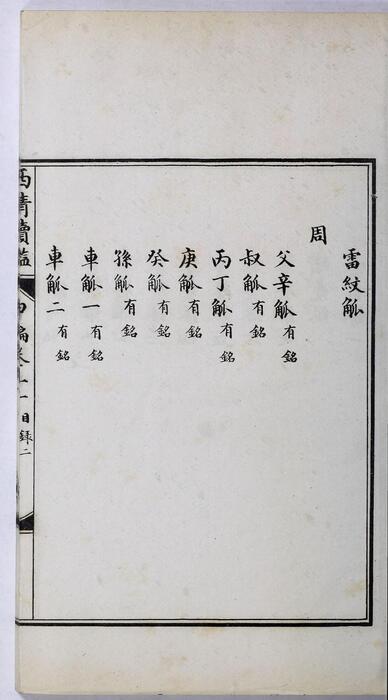 雷紋觚
周
父辛觚有銘
叔觚有銘
丙丁觚有銘
庚觚有銘
癸觚有銘
孫觚有銘
車觚一有銘
車觚二有銘
西清續鑑
卷十一
目錄二